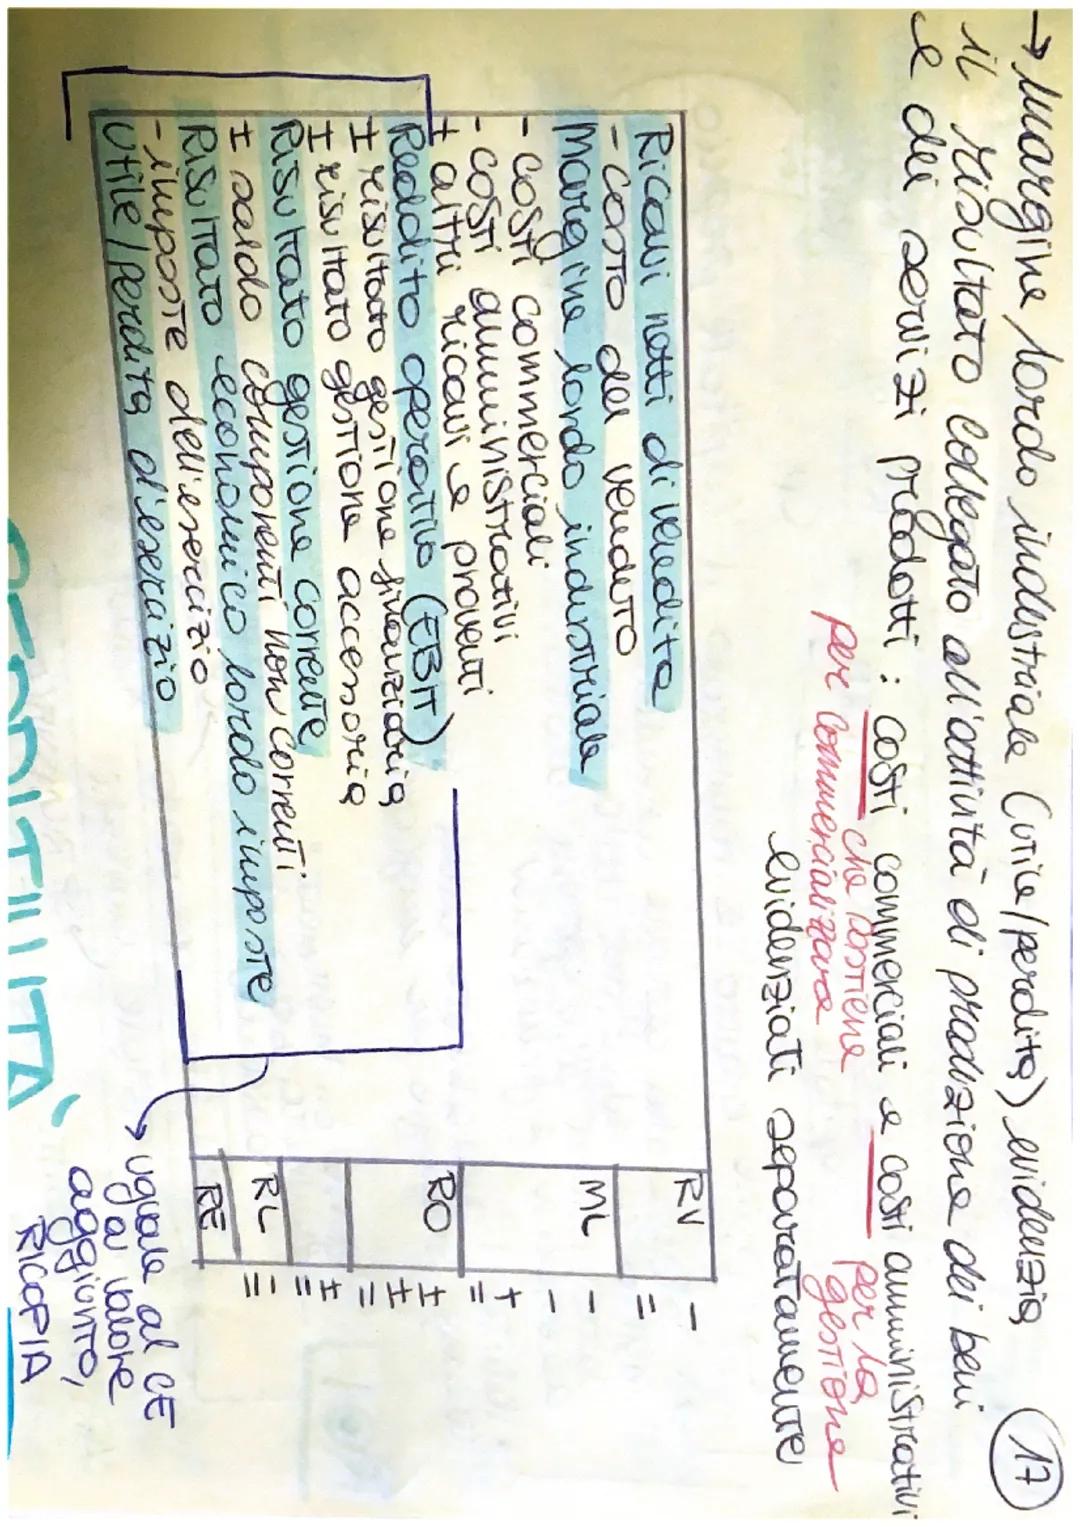 → Margine lordo industriale (utile/perdita) evidenzia 17
il risultato collegato all'attività di produzione dei beni
e dei servizi prodotti : costi commerciali e costi amministrativi
che sostiene per la
per commercializzare gestione
evidenziati separatamente
Ricavi netti di vendita RV -
- costo del venduto =
Margine lordo industriale ML -
- costi commerciali -
- costi amministrativi +
± altri ricavi e proventi =
Reddito operativo (EBIT) RO ±
± risultato gestione finanziaria ±
± risultato gestione accessoria =
Risultato gestione corrente ±
± saldo componenti non correnti =
Risultato economico lordo imposte RL -
- imposte dell'esercizio =
Utile/perdita d'esercizio RE
→ uguale al CE
a valore
aggiunto,
RICOPIA